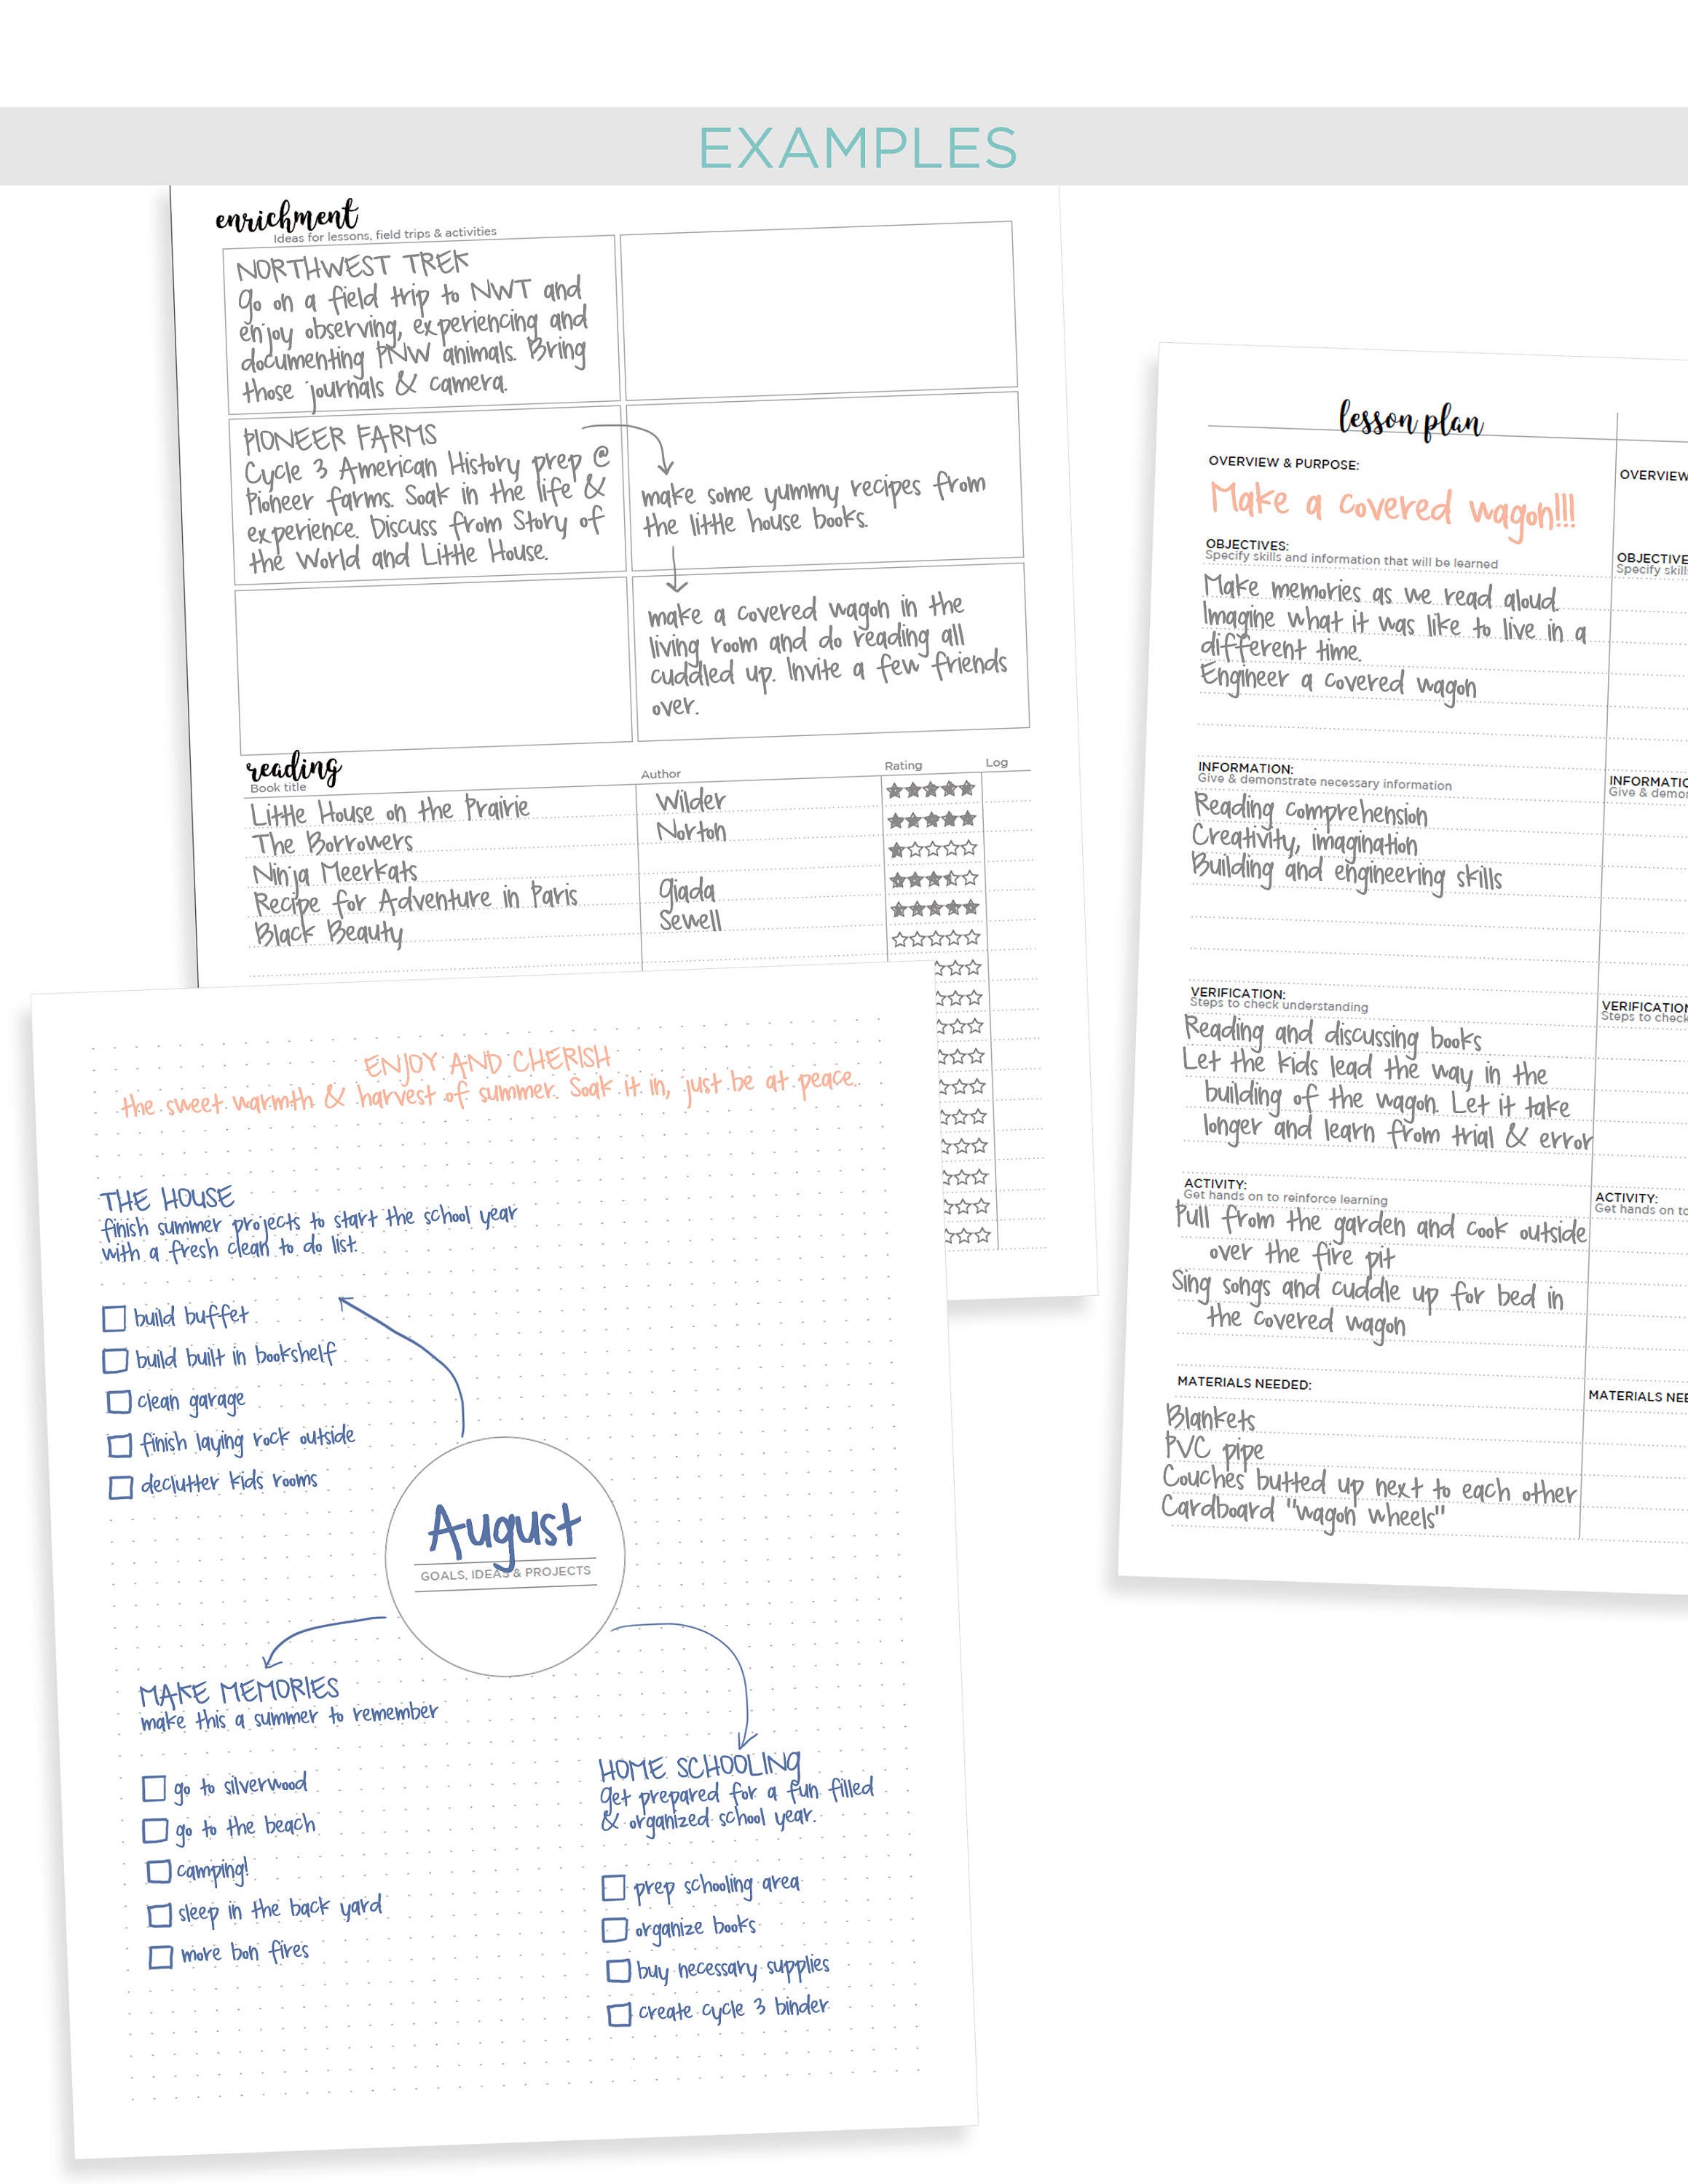 EXAMPLES
enrichment
Ideas for lessons, field trips & activities
NORTHWEST TREK
Go on a field trip to NWT and
enjoy observing, experiencing and
documenting PNW animals. Bring
those journals & camera.
PIONEER FARMS
Cycle 3 American History prep @
Pioneer farms. Soak in the life &
experience. Discuss from Story of
the World and Little House.
make some yummy recipes from
the little house books.
make a covered wagon in the
living room and do reading all
cuddled up. Invite a few friends
over.
reading
Book title Author Rating Log
Little House on the Prairie Wilder
The Borrowers Norton
Ninja Meerkats
Recipe for Adventure in Paris Giada
Black Beauty Sewell
ENJOY AND CHERISH
the sweet warmth & harvest of summer. Soak it in, just be at peace.
THE HOUSE
finish summer projects to start the school year
with a fresh clean to do list.
build buffet
build built in bookshelf
clean garage
finish laying rock outside
declutter kids rooms
August
GOALS, IDEAS & PROJECTS
MAKE MEMORIES
make this a summer to remember
go to silverwood
go to the beach
camping!
sleep in the back yard
more bon fires
HOME SCHOOLING
Get prepared for a fun filled
& organized school year.
prep schooling area
organize books
buy necessary supplies
create cycle 3 binder
lesson plan
OVERVIEW & PURPOSE:
Make a covered wagon!!!
OBJECTIVES:
Specify skills and information that will be learned
Make memories as we read aloud.
Imagine what it was like to live in a
different time.
Engineer a covered wagon
INFORMATION:
Give & demonstrate necessary information
Reading comprehension
Creativity, imagination
Building and engineering skills
VERIFICATION:
Steps to check understanding
Reading and discussing books
Let the kids lead the way in the
building of the wagon. Let it take
longer and learn from trial & error
ACTIVITY:
Get hands on to reinforce learning
Pull from the garden and cook outside
over the fire pit
Sing songs and cuddle up for bed in
the covered wagon
MATERIALS NEEDED:
Blankets
PVC pipe
Couches butted up next to each other
Cardboard "wagon wheels"
OVERVIEW
OBJECTIVE
Specify skill
INFORMATIO
Give & demon
VERIFICATION
Steps to check
ACTIVITY:
Get hands on to
MATERIALS NEE